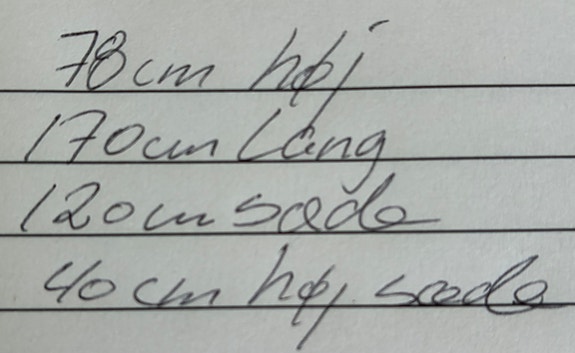 78cm høj
170cm lang
120cm sæde
40cm høj sæde